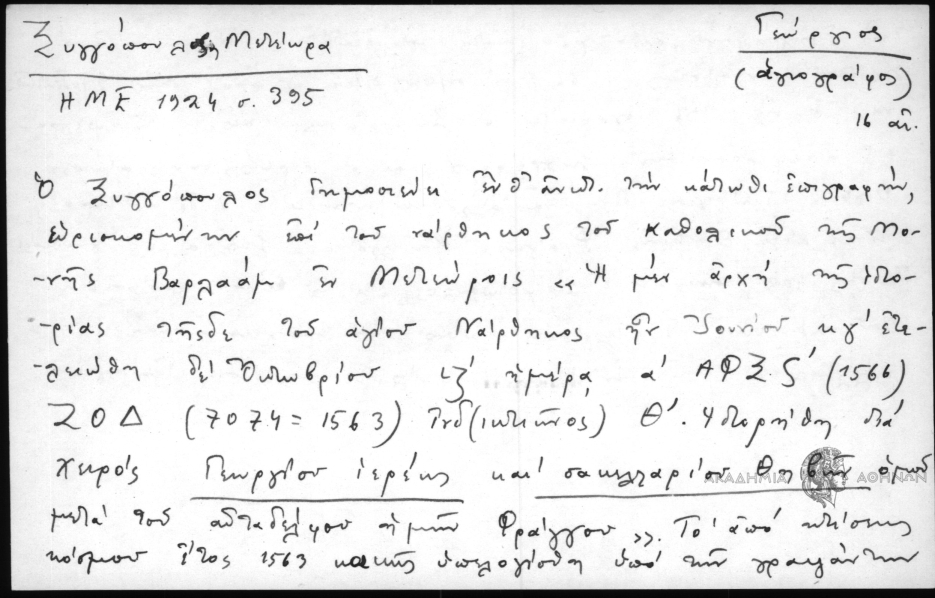 Ξυγγόπουλος Μετέωρα
ΗΜΕ 1924 σ. 395
Γεώργιος
(ἁγιογράφος)
16 αἰ.
Ὁ Ξυγγόπουλος δημοσιεύει ἐν θ' ἀνωτ. τὴν κάτωθι ἐπιγραφήν,
εὑρισκομένην ἐπί τοῦ νάρθηκος τοῦ καθολικοῦ τῆς Μο-
-νῆς Βαρλαάμ ἐν Μετεώροις «Ἡ μέν ἀρχή τῆς ἱστο-
-ρίας τῆσδε τοῦ ἁγίου Νάρθηκος ἦν Ἰουνίου κγ' ἐτε-
-λειώθη δέ Ὀκτωβρίου ιζ' ἡμέρᾳ α' ΑΦΞϚ' (1566)
ΖΟΔ (7074 = 1563) Ἰνδ(ικτιῶνος) Θ'. Ἱστορήθη διά
χειρός Γεωργίου ἱερέως καί σακελλαρίου Θηβῶν ὁμοῦ
ΑΚΑΔΗΜΙΑ ΑΘΗΝΩΝ
μετά τοῦ αὐταδέλφου ἡμῶν Φράγγου». Τό ἀπό κτίσεως
κόσμου ἔτος 1563 κακῶς ὑπελογίσθη ὑπό τῶν γραψάντων